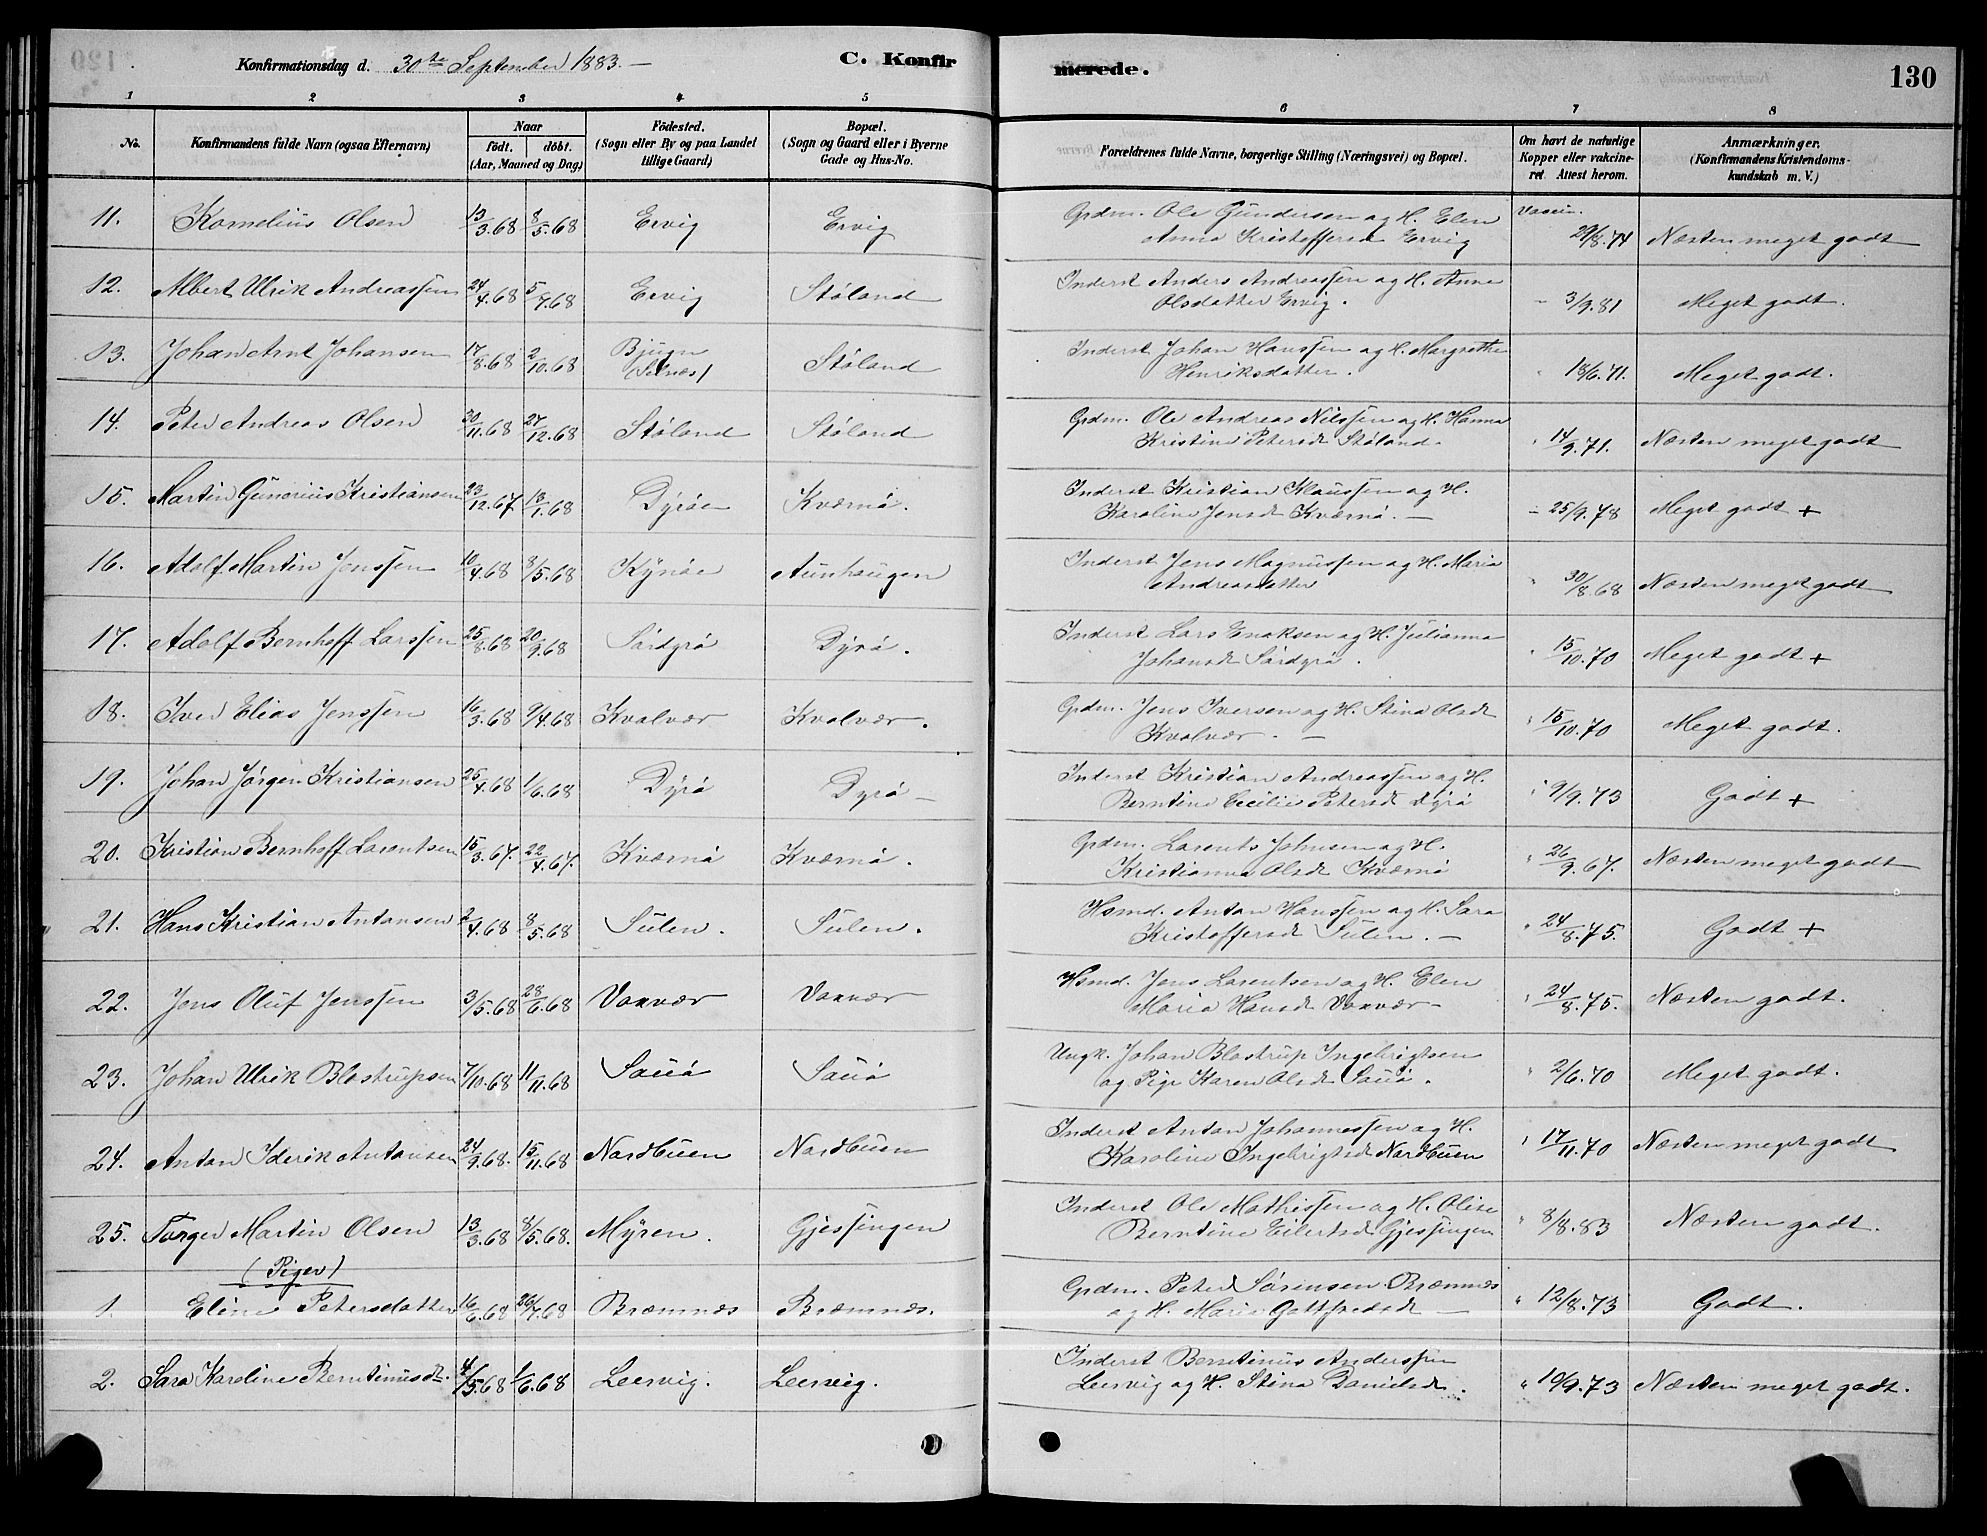 Konfirmationsdag d. 30te September 1883.— C. Konfirmerede. 130
1 2 3 4 5 6 7 8
No. Konfirmandens fulde Navn (ogsaa Efternavn) Naar født. døbt. (Aar, Maaned og Dag) Fødested. (Sogn eller By og paa Landet tillige Gaard) Bopæl. (Sogn og Gaard eller i Byerne Gade og Hus-No. Forældrenes fulde Navne, borgerlige Stilling (Næringsvei) og Bopæl. Om havt de naturlige Kopper eller vakcineret Attest herom. Anmærkninger. (Konfirmandens Kristendomskundskab m. V.)
11. Kornelius Olsen 13/3.68 8/5.68 Ervig Ervig Grdm. Ole Gundersen og H. Elen Vaccin.
Anna Kristoffersd Ervig 29/8.74 Næsten meget godt
12. Albert Ulrik Andreassen 24/4.68 5/7.68 Ervig Støland Inderst Anders Andreassen og H. Anne
Olsdatter Ervig. " 3/9.81 Meget godt.
13. Johan Arnt Johansen 17/8.68 2/10.68 Bjugn Støland Inderst Johan Hanssen og H. Margrethe
Henriksdatter. " 18/6.71. Meget godt.
14. Peter Andreas Olsen 30/11.68 27/12.68 Støland Støland Grdm. Ole Andreas Nilssen og H. Hanna
Kristine Petersd Støland. " 14/9.71. Næsten meget godt
15. Martin Gunerius Kristiansen 23/12.67 13/1.68 Dyrøe Kværnø. Inderst Kristian Klaussen og H.
Karoline Jensd Kværnø.— " 25/9.78 Meget godt +
16. Adolf Martin Jenssen 10/4.68 8/5.68 Kynøe Aunhaugen Inderst Jens Magnussen og H. Maria
Andreasdatter " 30/8.68 Næsten meget godt
17. Adolf Bernhoff Larssen 25/8.68 20/9.68 Sørdyrø Dyrø. Inderst Lars Enoksen og H. Julianna
Johansd Sørdyrø. " 15/10.70 Meget godt +
18. Iver Elias Jenssen 16/3.68 9/4.68 Kvalvær Kvalvær. Grdm. Jens Iversen og H. Stina Olsd
Kvalvær.— " 15/10.70 Meget godt.
19. Johan Jørgen Kristiansen 25/4.68 1/6.68 Dyrø Dyrø— Inderst Kristian Andreassen og H.
Berntine Cecilie Petersd Dyrø " 9/9.73 Godt +
20. Kristian Bernhoff Larentsen 15/3.67. 22/4.67. Kværnø Kværnø. Grdm. Larents Johnsen og H.
Kristianna Olsd Kværnø " 26/9.67. Næsten meget godt
21. Hans Kristian Antonsen 2/4.68 8/5.68 Sulen. Sulen. Hsmd. Anton Hanssen og H. Sara
Kristoffersd Sulen.— " 24/8.75. Godt +
22. Jens Oluf Jenssen 3/5.68 28/6.68 Vaxvær Vaxvær Hsmd. Jens Larentsen og H. Elen
Maria Hansd Vaxvær— " 24/8.75. Næsten godt.
23. Johan Ulrik Blostrupsen 7/10.68 11/11.68 Sauø Sauø Ungk. Johan Blostrup Ingebrigtsen
og Pige Karen Olsd Sauø. " 2/6.70 Meget godt.
24. Anton Iderik Antonsen 24/9.68. 15/11.68 Nordbuen Nordbuen Inderst Anton Johannessen og H.
Karoline Ingebrigtsd Nordbuen " 17/11.70 Næsten meget godt
25. Torger Martin Olsen 13/3.68 8/5.68. Myren. Gjessingen Inderst Ole Mathissen og H. Olise
Berntine Eilertsd Gjessingen " 8/8.83 Næsten godt.
(Piger)
1. Eline Petersdatter 16/6.68 26/7.68 Bræmnæs Bræmnæs. Grdm. Peter Sørensen Bræmnæs
og H. Maria Gottfredsd — " 12/8.73 Godt.
2. Sara Karoline Berntinusdtr. 4/5.68 1/6.68 Leervig. Leervig. Inderst Berntinus Anderssen
Leervig og H. Stina Danielsd. " 10/9.73 Næsten meget godt.